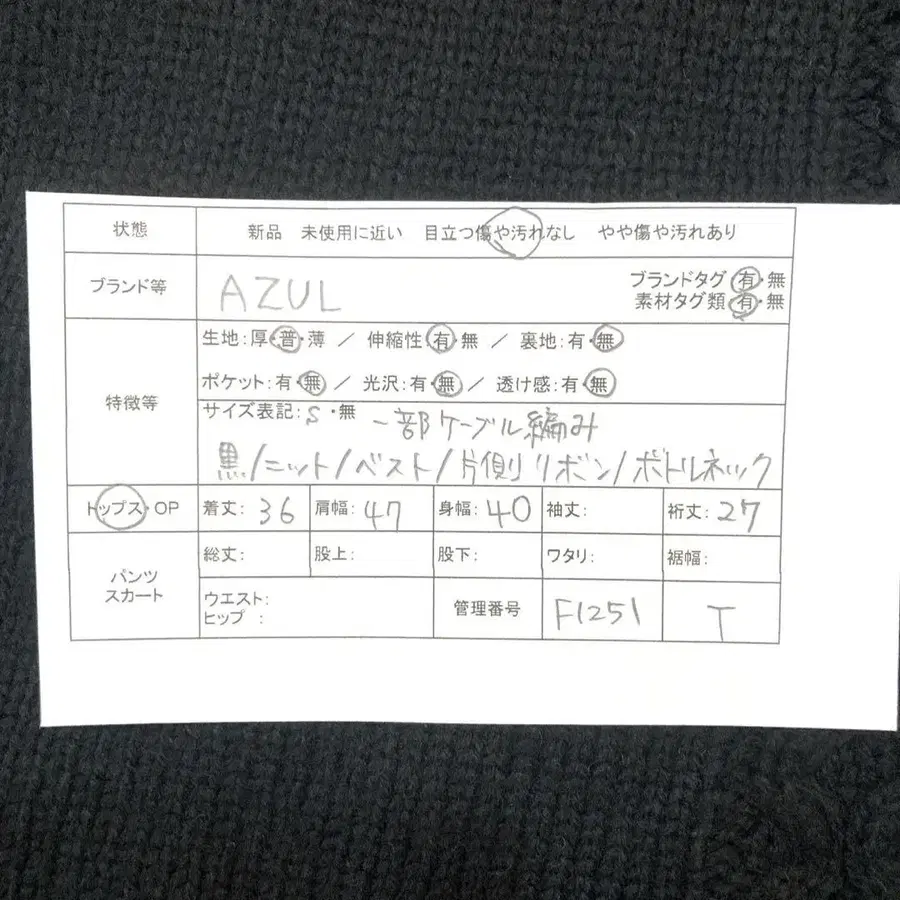 状態 新品 未使用に近い 目立つ傷や汚れなし やや傷や汚れあり
ブランド等 AZUL ブランドタグ 有・無
素材タグ類 有・無
特徴等 生地:厚・普・薄 / 伸縮性 有・無 / 裏地:有・無
ポケット:有・無 / 光沢:有・無 / 透け感:有・無
サイズ表記:S・無 一部ケーブル編み
黒/ニット/ベスト/片側リボン/ボトルネック
トップス・OP 着丈:36 肩幅:47 身幅:40 袖丈: 裄丈:27
パンツ スカート 総丈: 股上: 股下: ワタリ: 裾幅:
ウエスト:
ヒップ : 管理番号 F1251 T